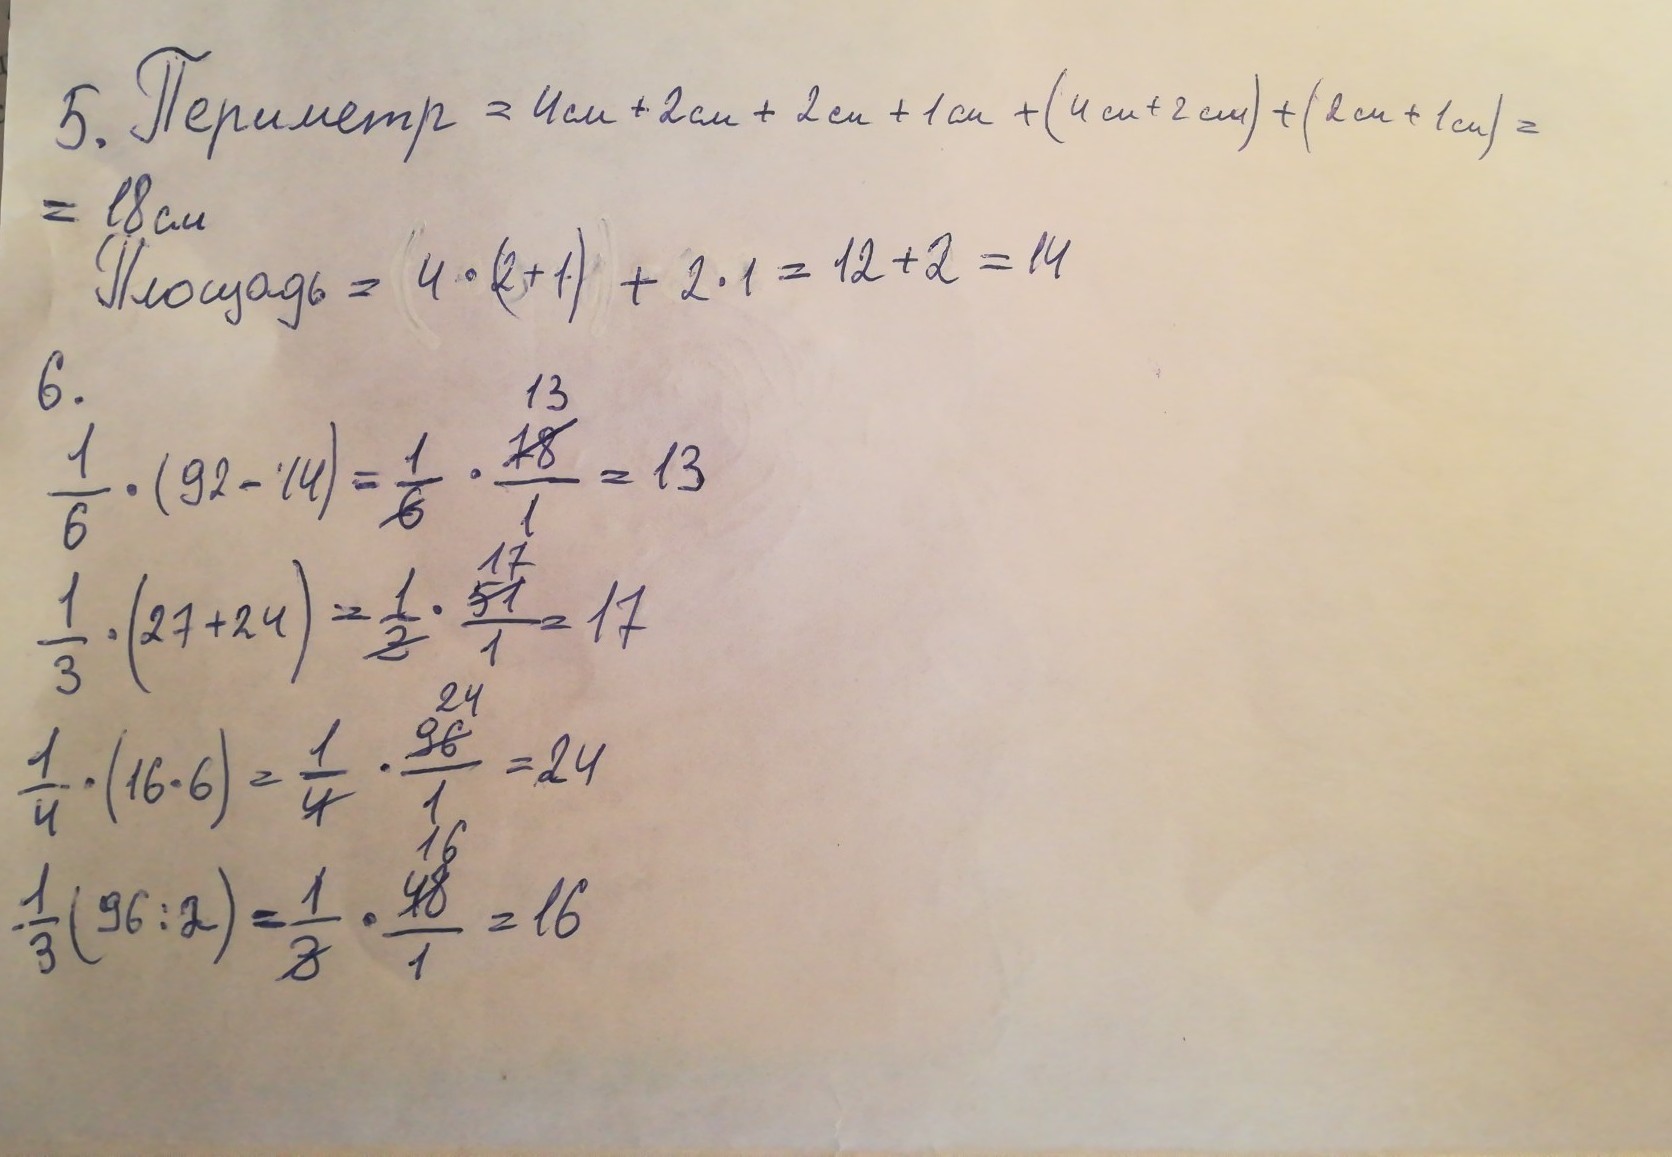 5. Периметр = 4см + 2см + 2см + 1см + (4см + 2см) + (2см + 1см) =
= 18см
Площадь = 4 · (2+1) + 2 · 1 = 12 + 2 = 14
6.
1/6 · (92 - 14) = 1/6 · 78/1 = 13
13
1/3 · (27 + 24) = 1/2 · 51/1 = 17
17
1/4 · (16 · 6) = 1/4 · 96/1 = 24
24
1/3 (96 : 2) = 1/3 · 48/1 = 16
16